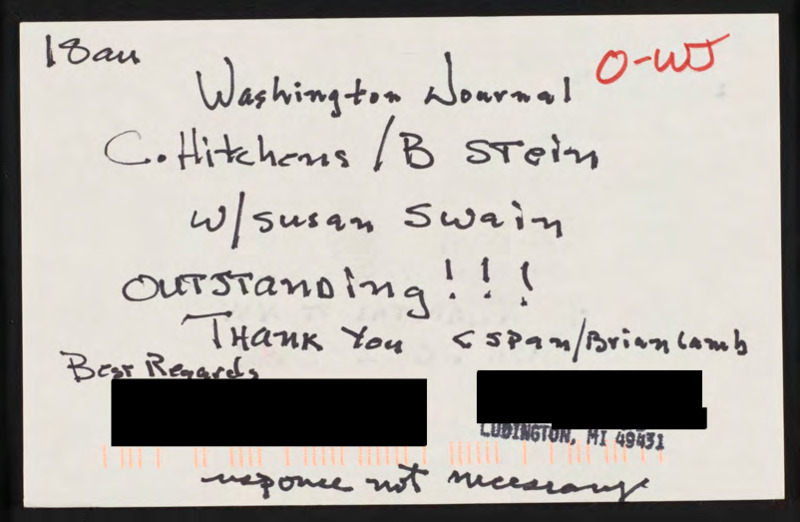 18au
O-WJ
Washington Journal
C. Hitchens / B STein
w/susan Swain
OUTSTanDing!!!
THank You CSpan/Brian Lamb
Best Regards
LUDINGTON, MI 49431
responce not necessary